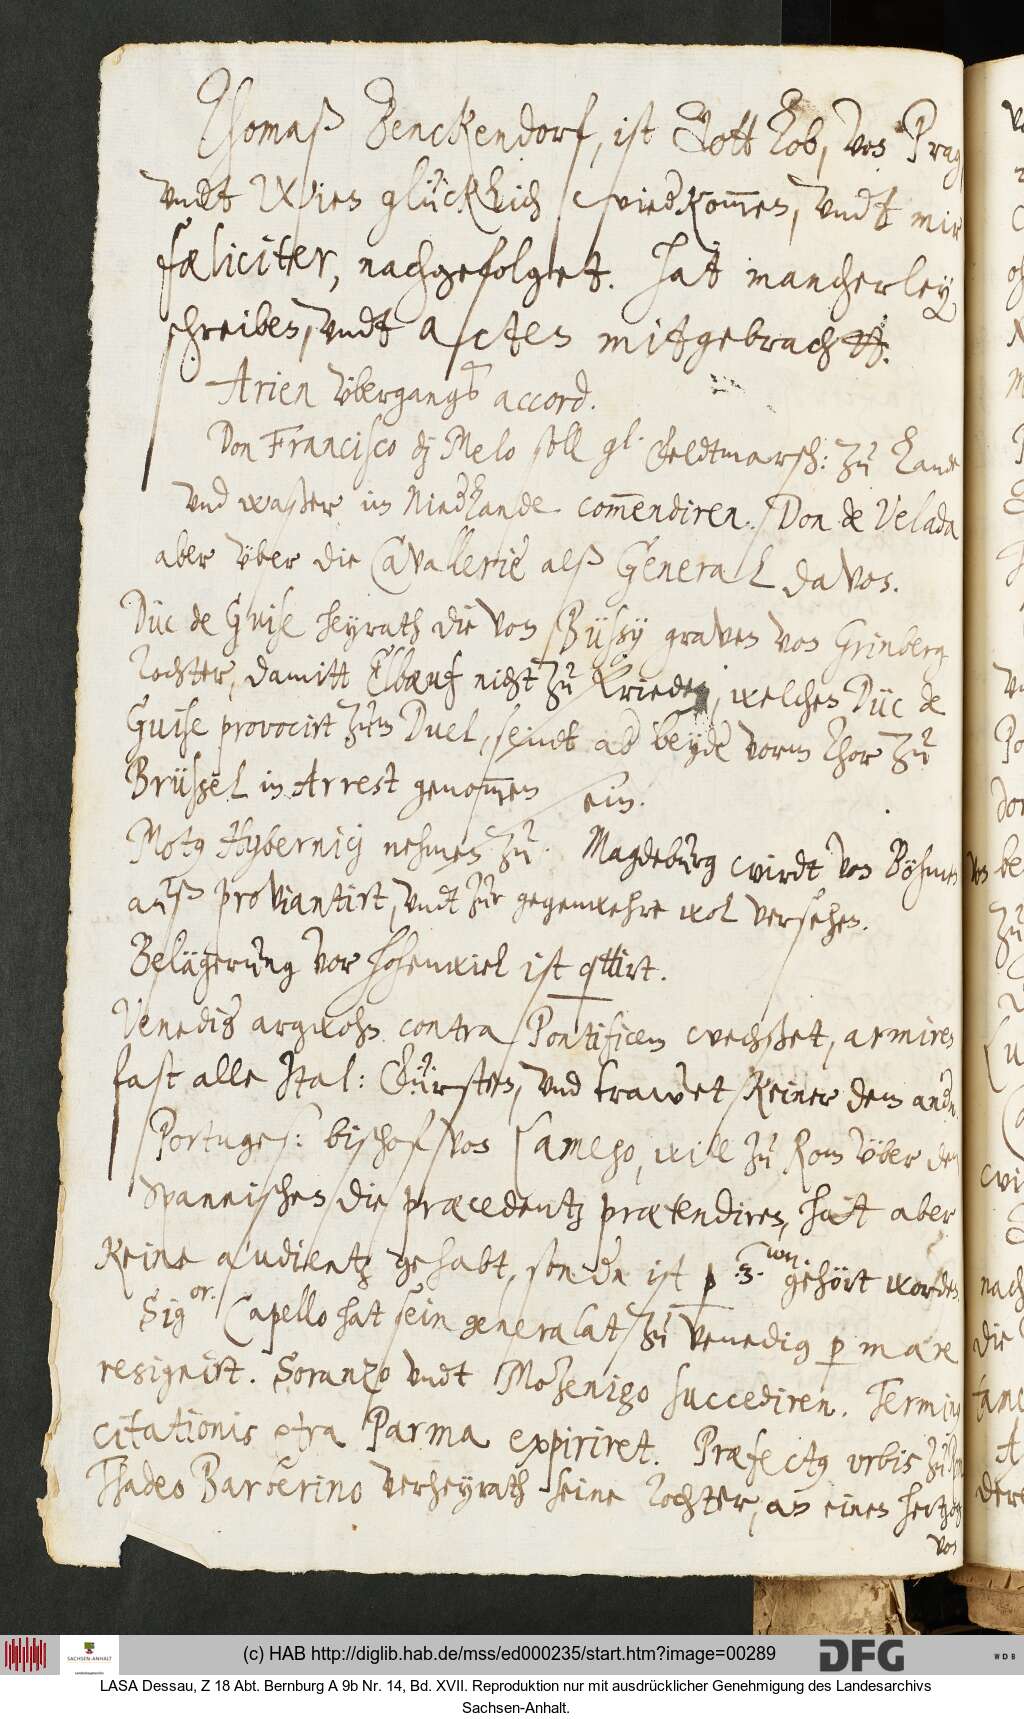 Thomaß Benckendorf, ist Gott lob, von Prag,
vndt Wien glücklich wiedkom̅en, vndt mir
fœliciter, nachgefolget. Hat mancherley
schreiben, vndt acten mitgebracht.
Arien übergangs accord.
Don Francisco di Melo soll gl. Feldtmarsch: zu Lande
vnd waßer im Niedlande com̅endiren. Don de Velada
aber über die Cavallerie alß General davon.
Duc de Guise heyrath die von Büssy graven von Grinberg
Tochter, damitt Elbœuf nicht zu frieden, welchen Duc de
Guise provocirt zum Duel, seindt ab beyde vorm Thor zu
Brüssel in Arrest genom̅en ein.
Motg Hybernici nehmen zu. Magdeburg wirdt von Böhmen
auß proviantirt, vndt zur gegenwehre wol versehen.
Belägerung vor Hohenwiel ist qttirt.
Venedig argwohn contra Pontificem wechßet, armiren
fast alle Ital: Fürsten, vnd trawet keiner dem andn.
Portuges: bischof von Lamego, will zu Rom über den
Spannischen die præcedentz prætendiren, hat aber
keine audientz gehabt, sondn ist p .3. wn. gehört worden.
Sigor. Capello hat sein generalat zu Venedig p mare
resignirt. Soranzo vndt Mosenigo succediren. Terming
citationis ctra Parma expiriret. Præfectg urbis zu Rom
Thadeo Barberino verheyrath seine Tochter, an einen hertzog
von
(c) HAB http://diglib.hab.de/mss/ed000235/start.htm?image=00289
DFG
WDB
SACHSEN-ANHALT
LASA Dessau, Z 18 Abt. Bernburg A 9b Nr. 14, Bd. XVII. Reproduktion nur mit ausdrücklicher Genehmigung des Landesarchivs
Sachsen-Anhalt.